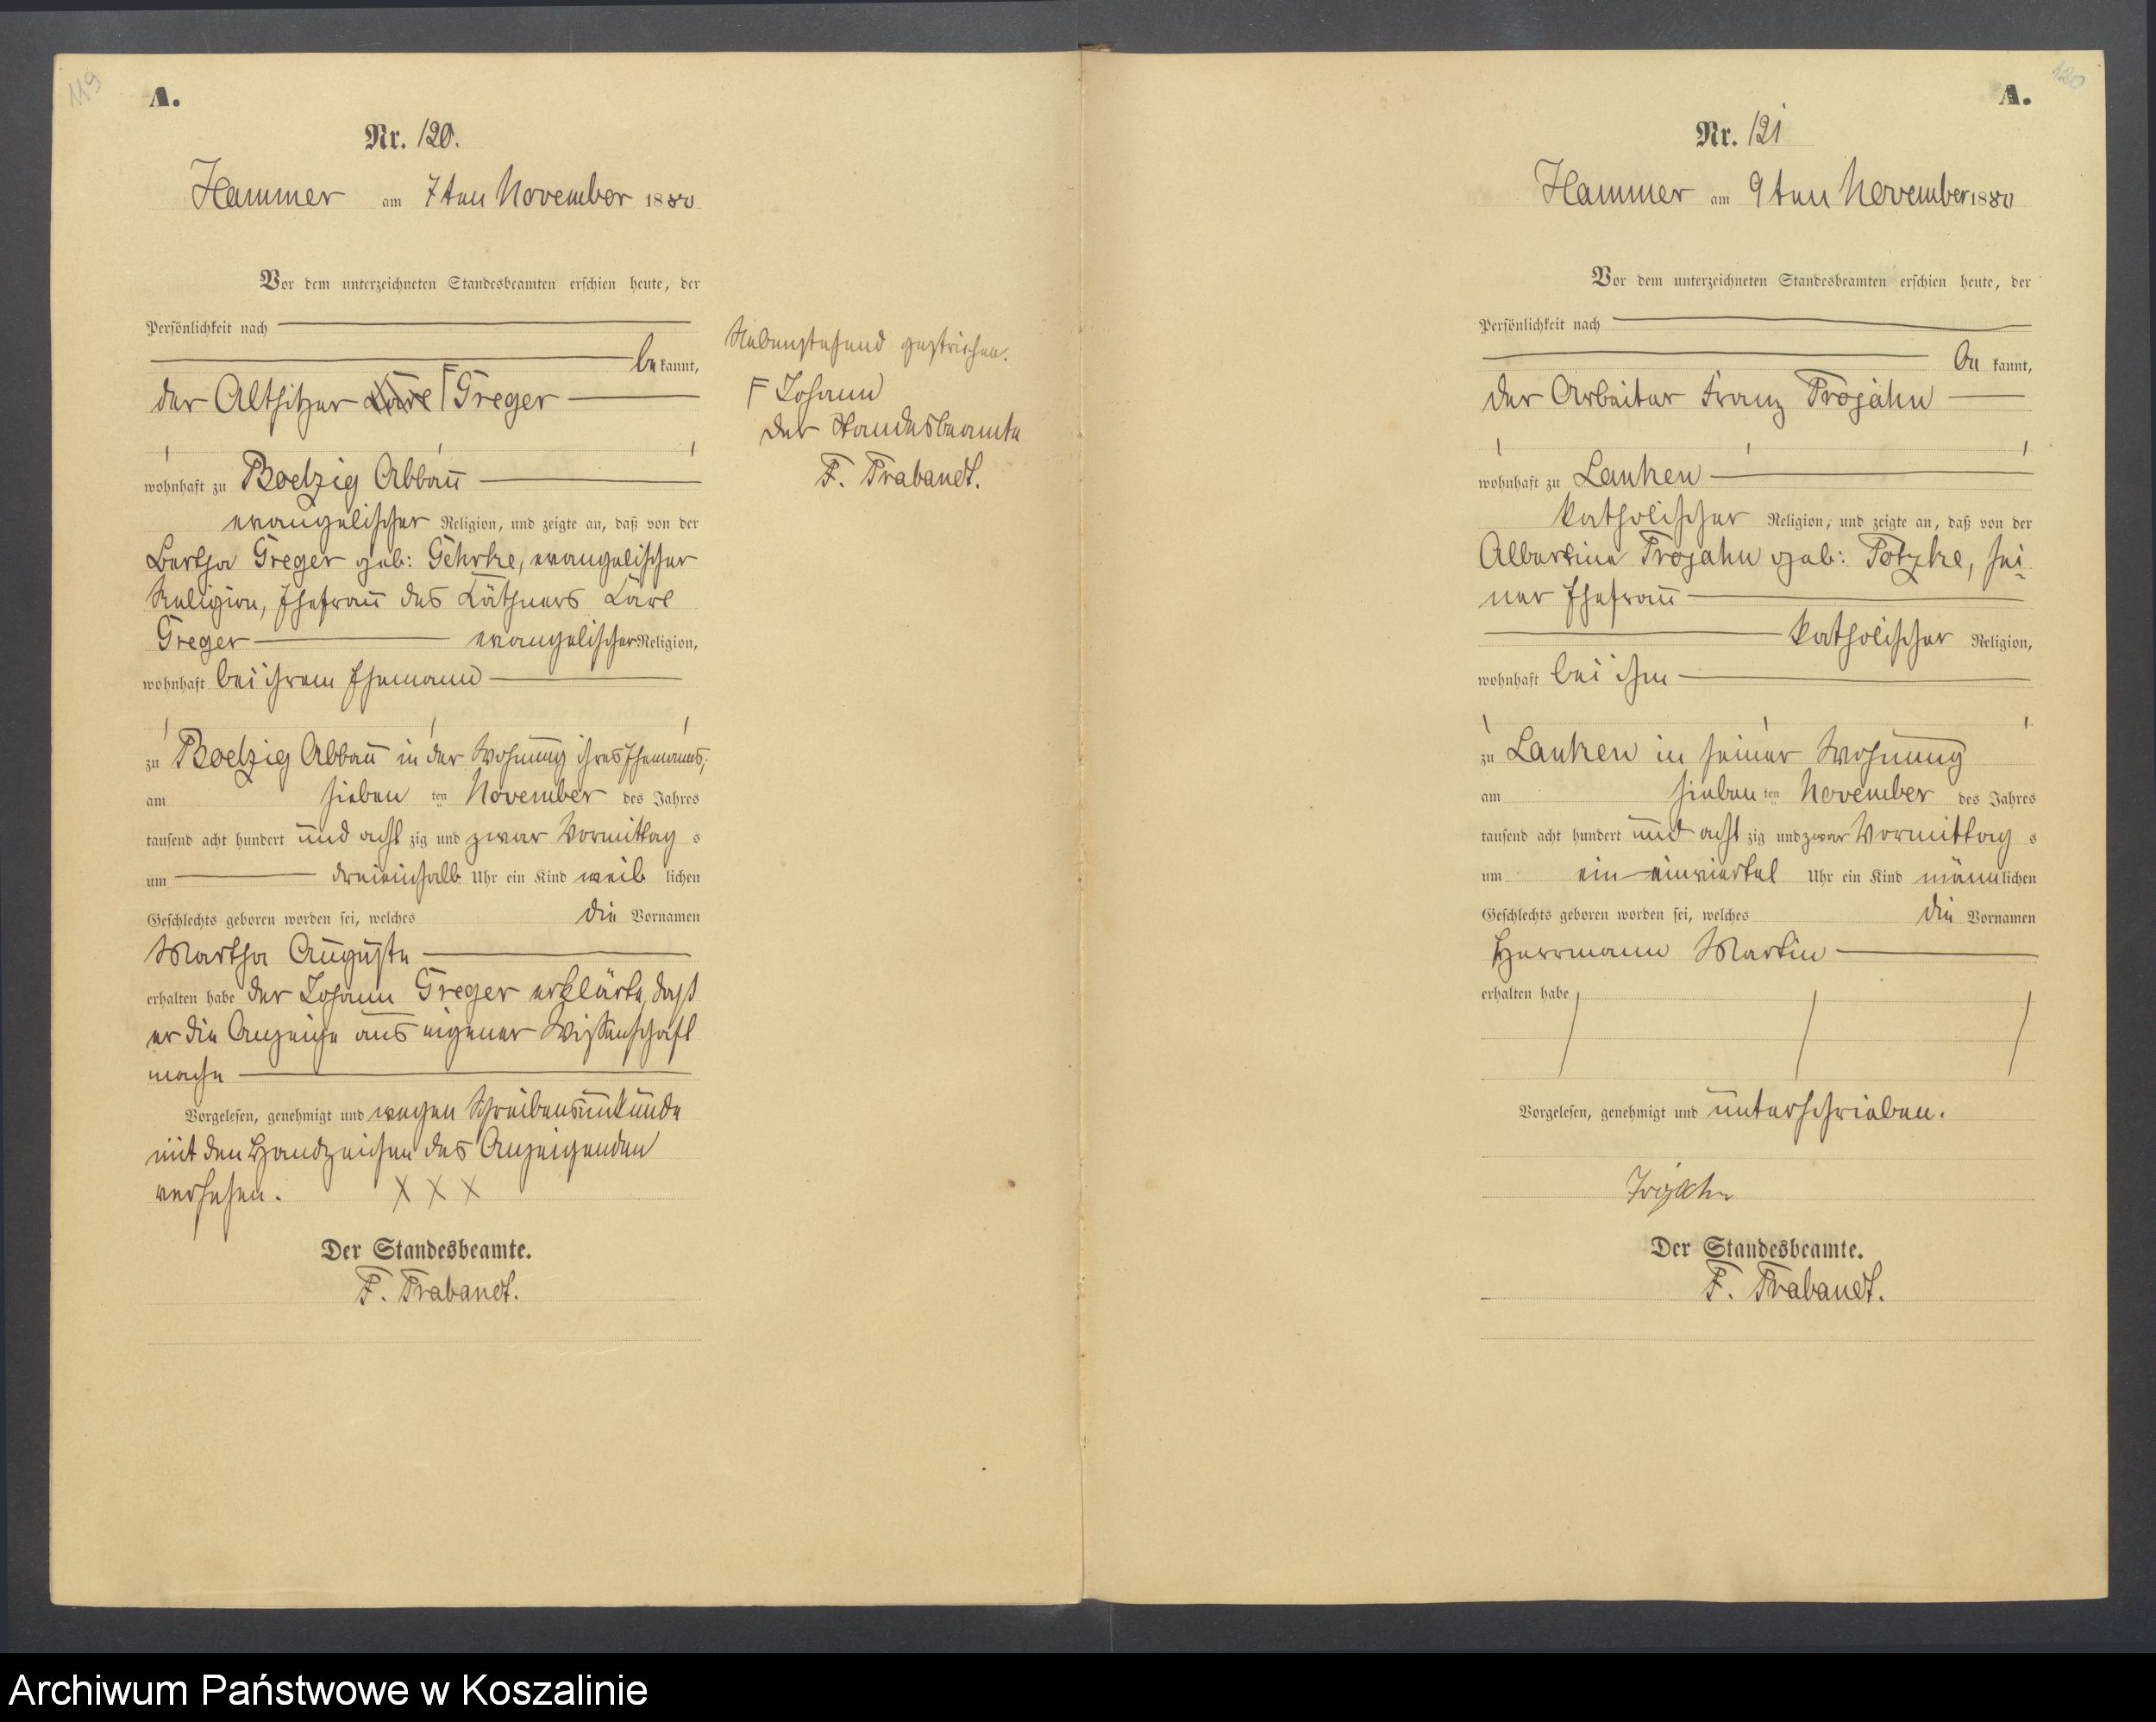 119
A.
Nr. 120.
Hammer am 7ten November 1880
Vor dem unterzeichneten Standesbeamten erschien heute, der
Persönlichkeit nach
bekannt,
der Altsitzer Karl ⌈ Greger
wohnhaft zu Roetzig Abbau
evangelischer Religion, und zeigte an, daß von der
Bertha Greger geb: Gehrke, evangelischer
Religion, Ehefrau des Käthners Karl
Greger evangelischer Religion,
wohnhaft bei ihrem Ehemann
zu Roetzig Abbau in der Wohnung ihres Ehemanns,
am sieben ten November des Jahres
tausend acht hundert und acht zig und zwar Vormittag s
um dreieinhalb Uhr ein Kind weib lichen
Geschlechts geboren worden sei, welches die Vornamen
Martha Auguste
erhalten habe der Johann Greger erklärte, daß
er die Anzeige aus eigener Wissenschaft
mache
Vorgelesen, genehmigt und wegen Schreibensunkunde
mit den Handzeichen des Anzeigenden
versehen. X X X
Der Standesbeamte.
F. Trabandt.
Nebenstehend gestrichen.
F Johann
Der Standesbeamte
F. Trabandt.
120
A.
Nr. 121
Hammer am 9ten November 1880
Vor dem unterzeichneten Standesbeamten erschien heute, der
Persönlichkeit nach
be kannt,
der Arbeiter Franz Trojahn
wohnhaft zu Lanken
katholischer Religion, und zeigte an, daß von der
Albertine Trojahn geb: Potzke, sei
ner Ehefrau
katholischer Religion,
wohnhaft bei ihm
zu Lanken in seiner Wohnung
am sieben ten November des Jahres
tausend acht hundert und acht zig und zwar Vormittag s
um ein einviertel Uhr ein Kind männlichen
Geschlechts geboren worden sei, welches die Vornamen
Herrmann Martin
erhalten habe
Vorgelesen, genehmigt und unterschrieben.
Trojahn
Der Standesbeamte.
F. Trabandt.
Archiwum Państwowe w Koszalinie